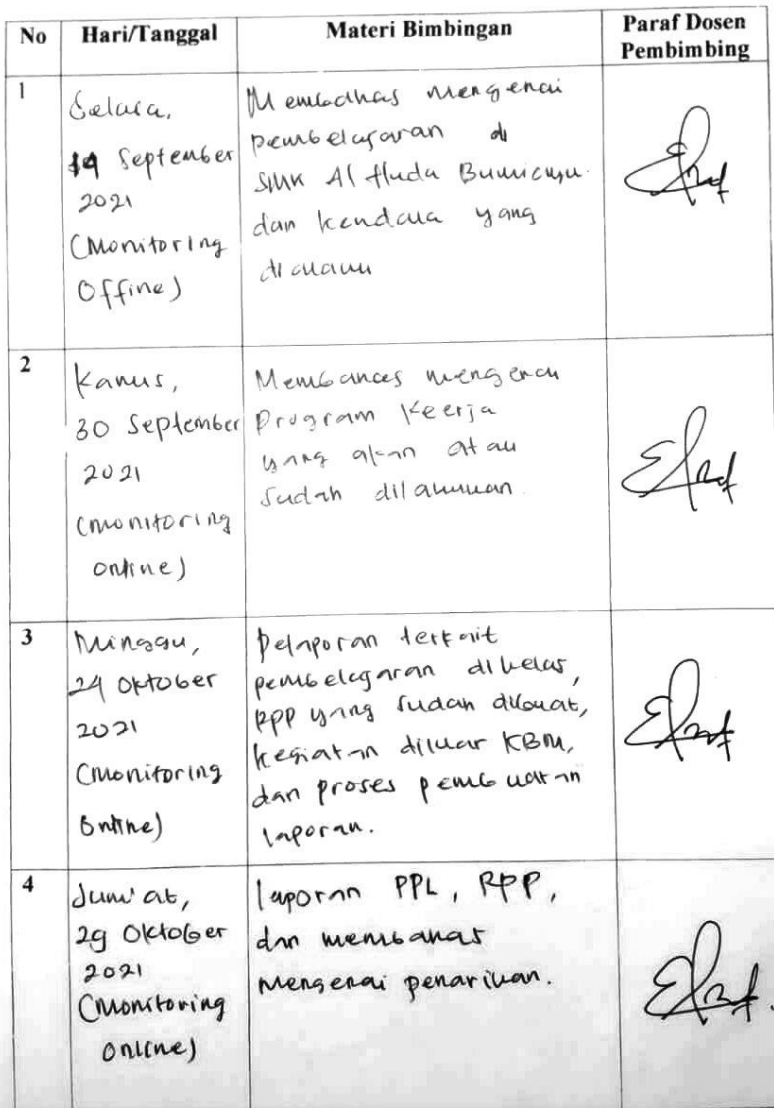 No Hari/Tanggal Materi Bimbingan Paraf Dosen Pembimbing
1
Selasa,
14 September
2021
(Monitoring
Offine)
Membahas mengenai
pembelajaran di
SMK Al Huda Bumiayu
dan kendala yang
dialami
2
Kamis,
30 September
2021
(monitoring
online)
Membahas mengenai
Program Keerja
yang akan atau
sudah dilakukan
3
Minggu,
24 Oktober
2021
(monitoring
online)
Pelaporan terkait
pembelajaran dikelas,
RPP yang sudah dibuat,
kegiatan diluar KBM,
dan proses pembuatan
laporan.
4
Jum'at,
29 Oktober
2021
(Monitoring
online)
laporan PPL, RPP,
dan membahas
mengenai penarikan.